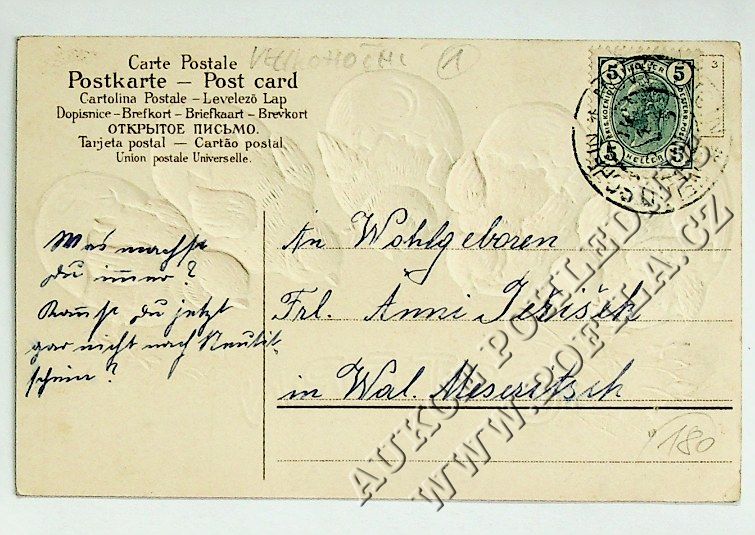 Carte Postale
Postkarte – Post card
Cartolina Postale – Levelező Lap
Dopisnice – Brefkort – Briefkaart – Brevkort
ОТКРЫТОЕ ПИСЬМО.
Tarjeta postal – Cartão postal
Union postale Universelle.
VELIKONOČNÍ 1
3
5 HELLER 5
5 HELLER 5
Was machst
Du immer?
Kommst Du jetzt
gar nicht nach Neutit
schein?
An Wohlgeboren
Frl. Anni Jeřišek
in Wal. Meseritsch
180
AUKCE POHLEDNIC
WWW.POFILA.CZ